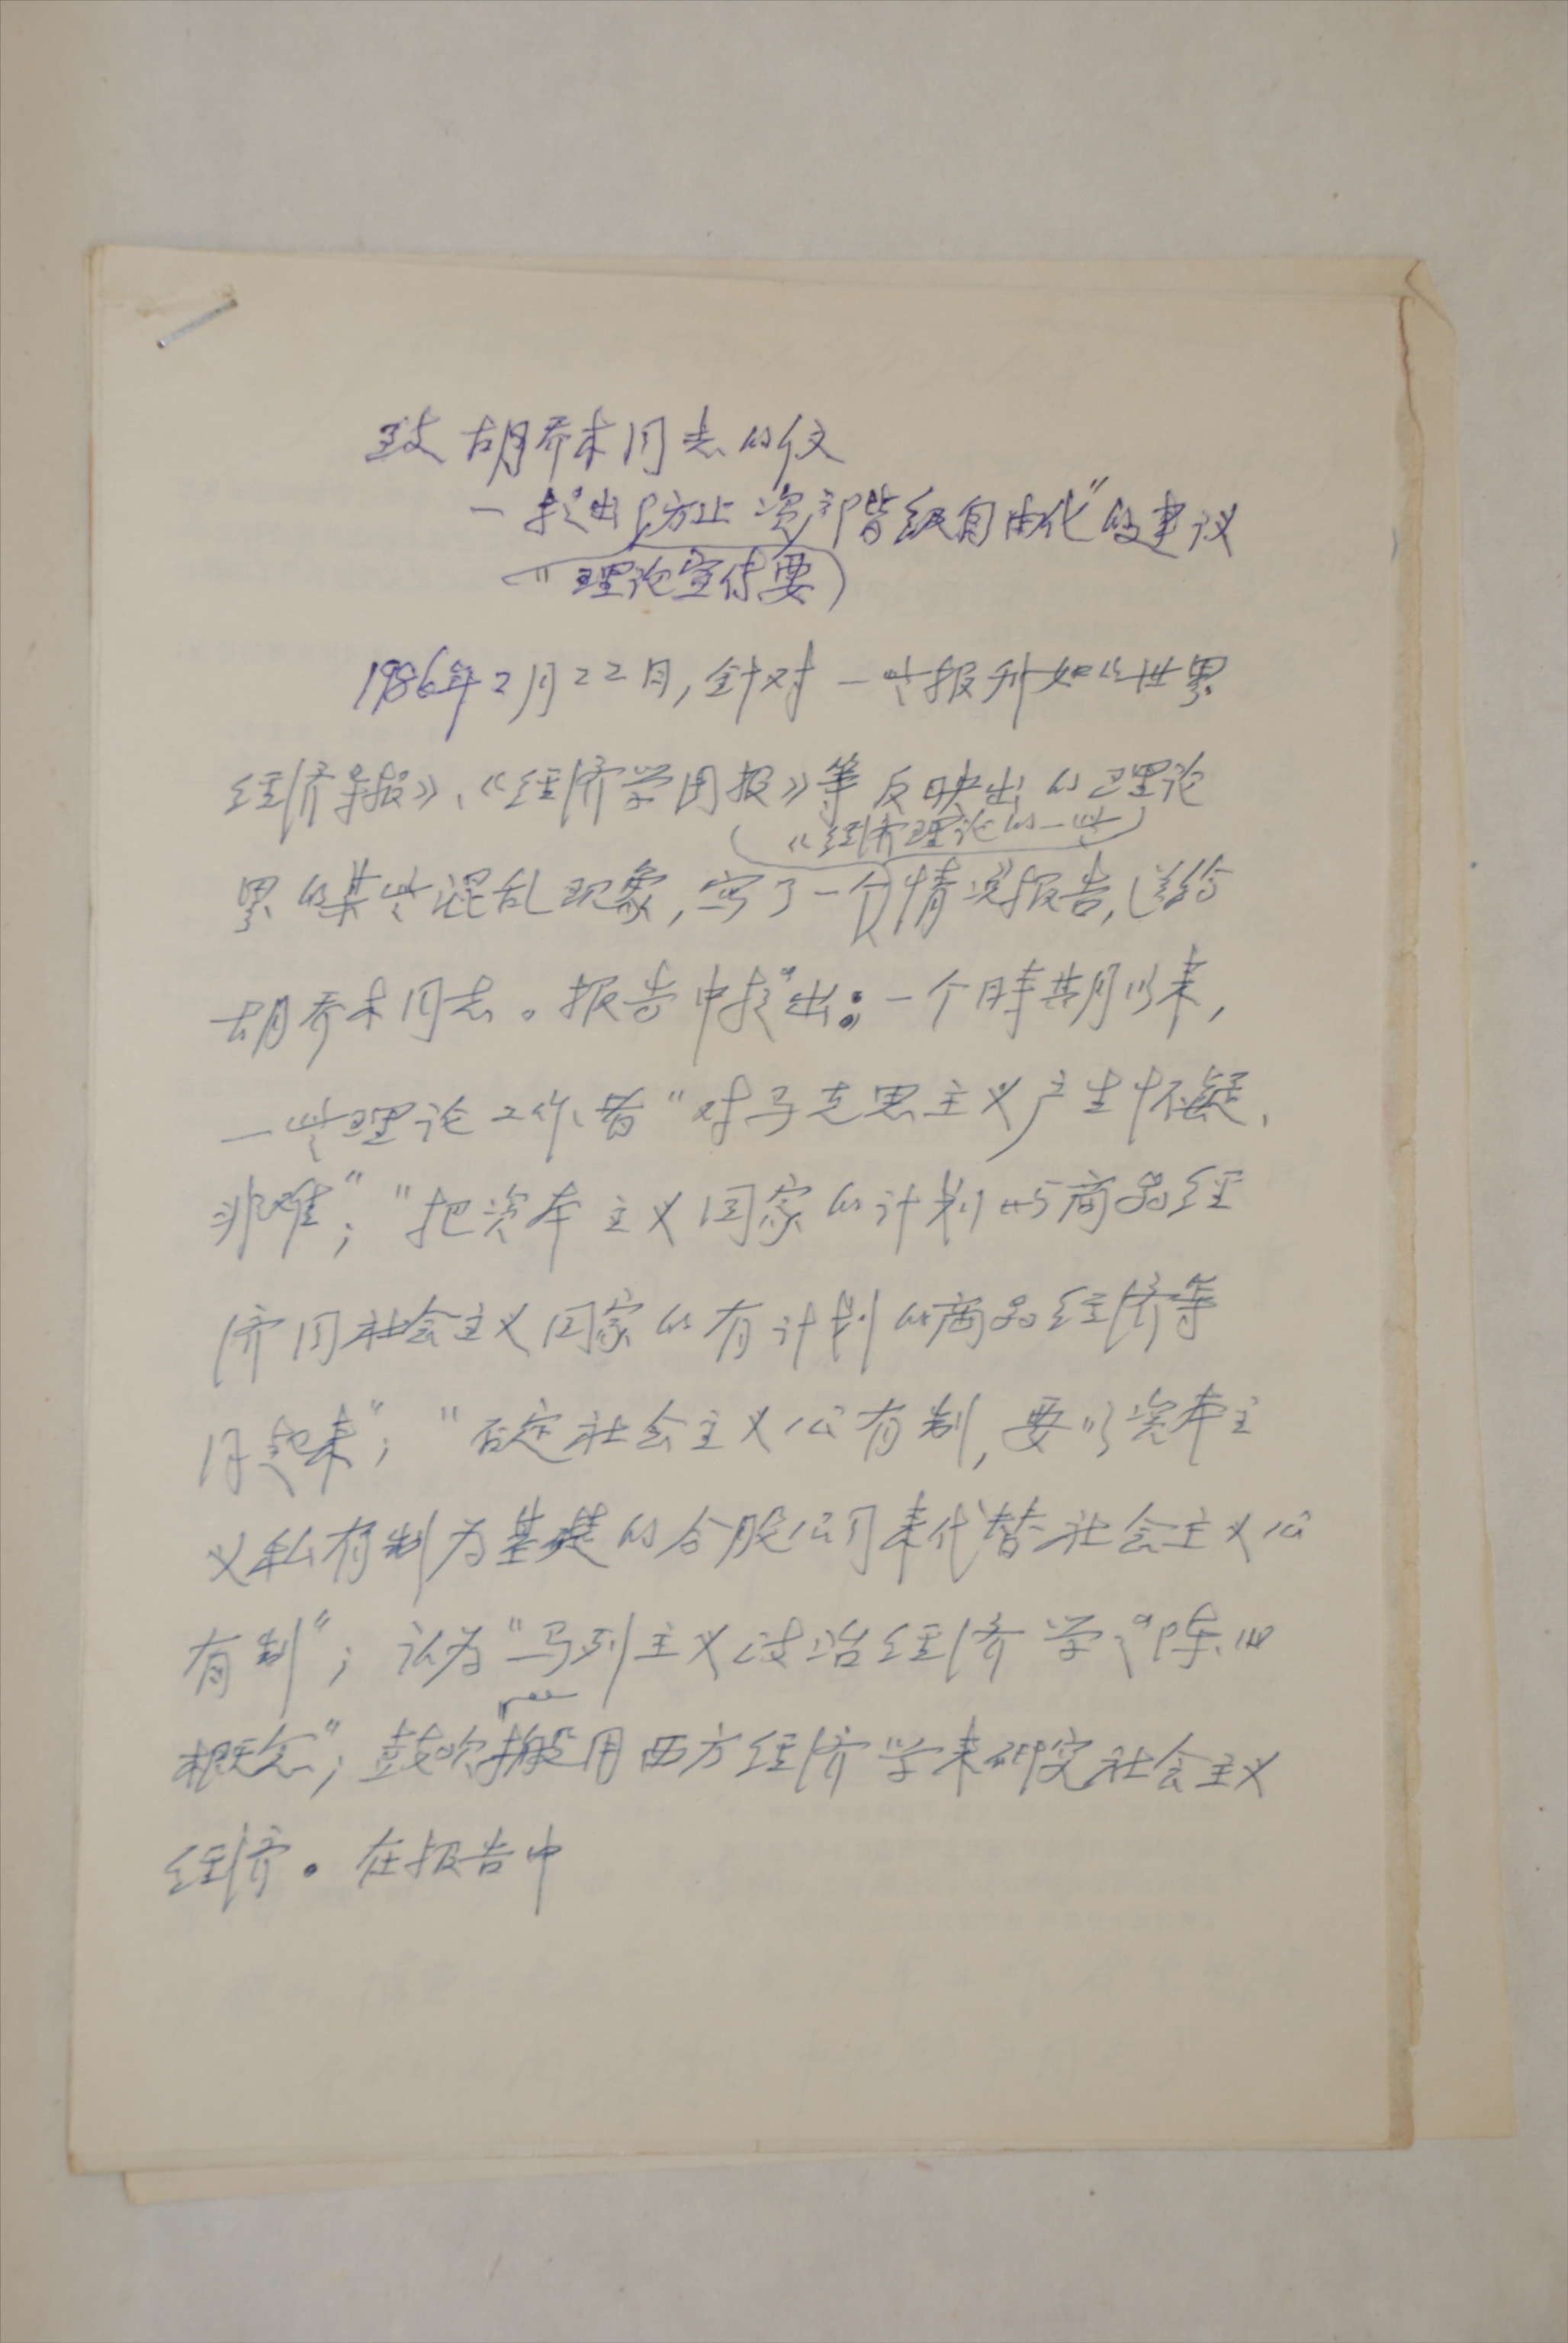 致胡乔木同志的信
一提出防止资产阶级自由化"的建议
"理论宣传要
1986年2月22日,针对一些报刊如《世界
经济导报》、《经济学周报》等反映出的理论
《经济理论的一些
界的某些混乱现象,写了一个情况》报告,送给
胡乔木同志。报告中提出:一个时期以来,
一些理论工作者"对马克思主义产生怀疑、
非难";"把资本主义国家的计划与商品经
济同社会主义国家的有计划的商品经济等
同起来";"否定社会主义公有制,要以资本主
义私有制为基础的合股公司来代替社会主义公
有制";认为"马列主义政治经济学是陈旧
概念";鼓吹"搬用西方经济学来研究社会主义
经济。在报告中